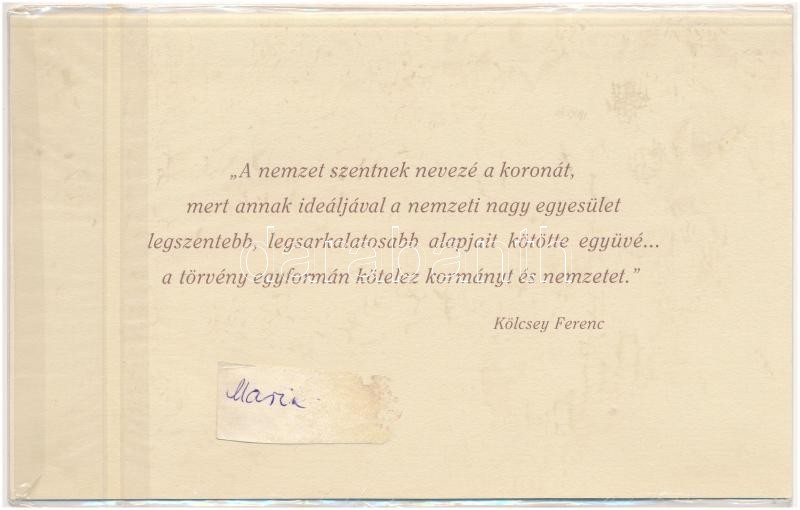 „A nemzet szentnek nevezé a koronát,
mert annak ideáljával a nemzeti nagy egyesület
legszentebb, legsarkalatosabb alapjait kötötte együvé...
a törvény egyformán kötelez kormányt és nemzetet.”
Kölcsey Ferenc
darabanth
Maria